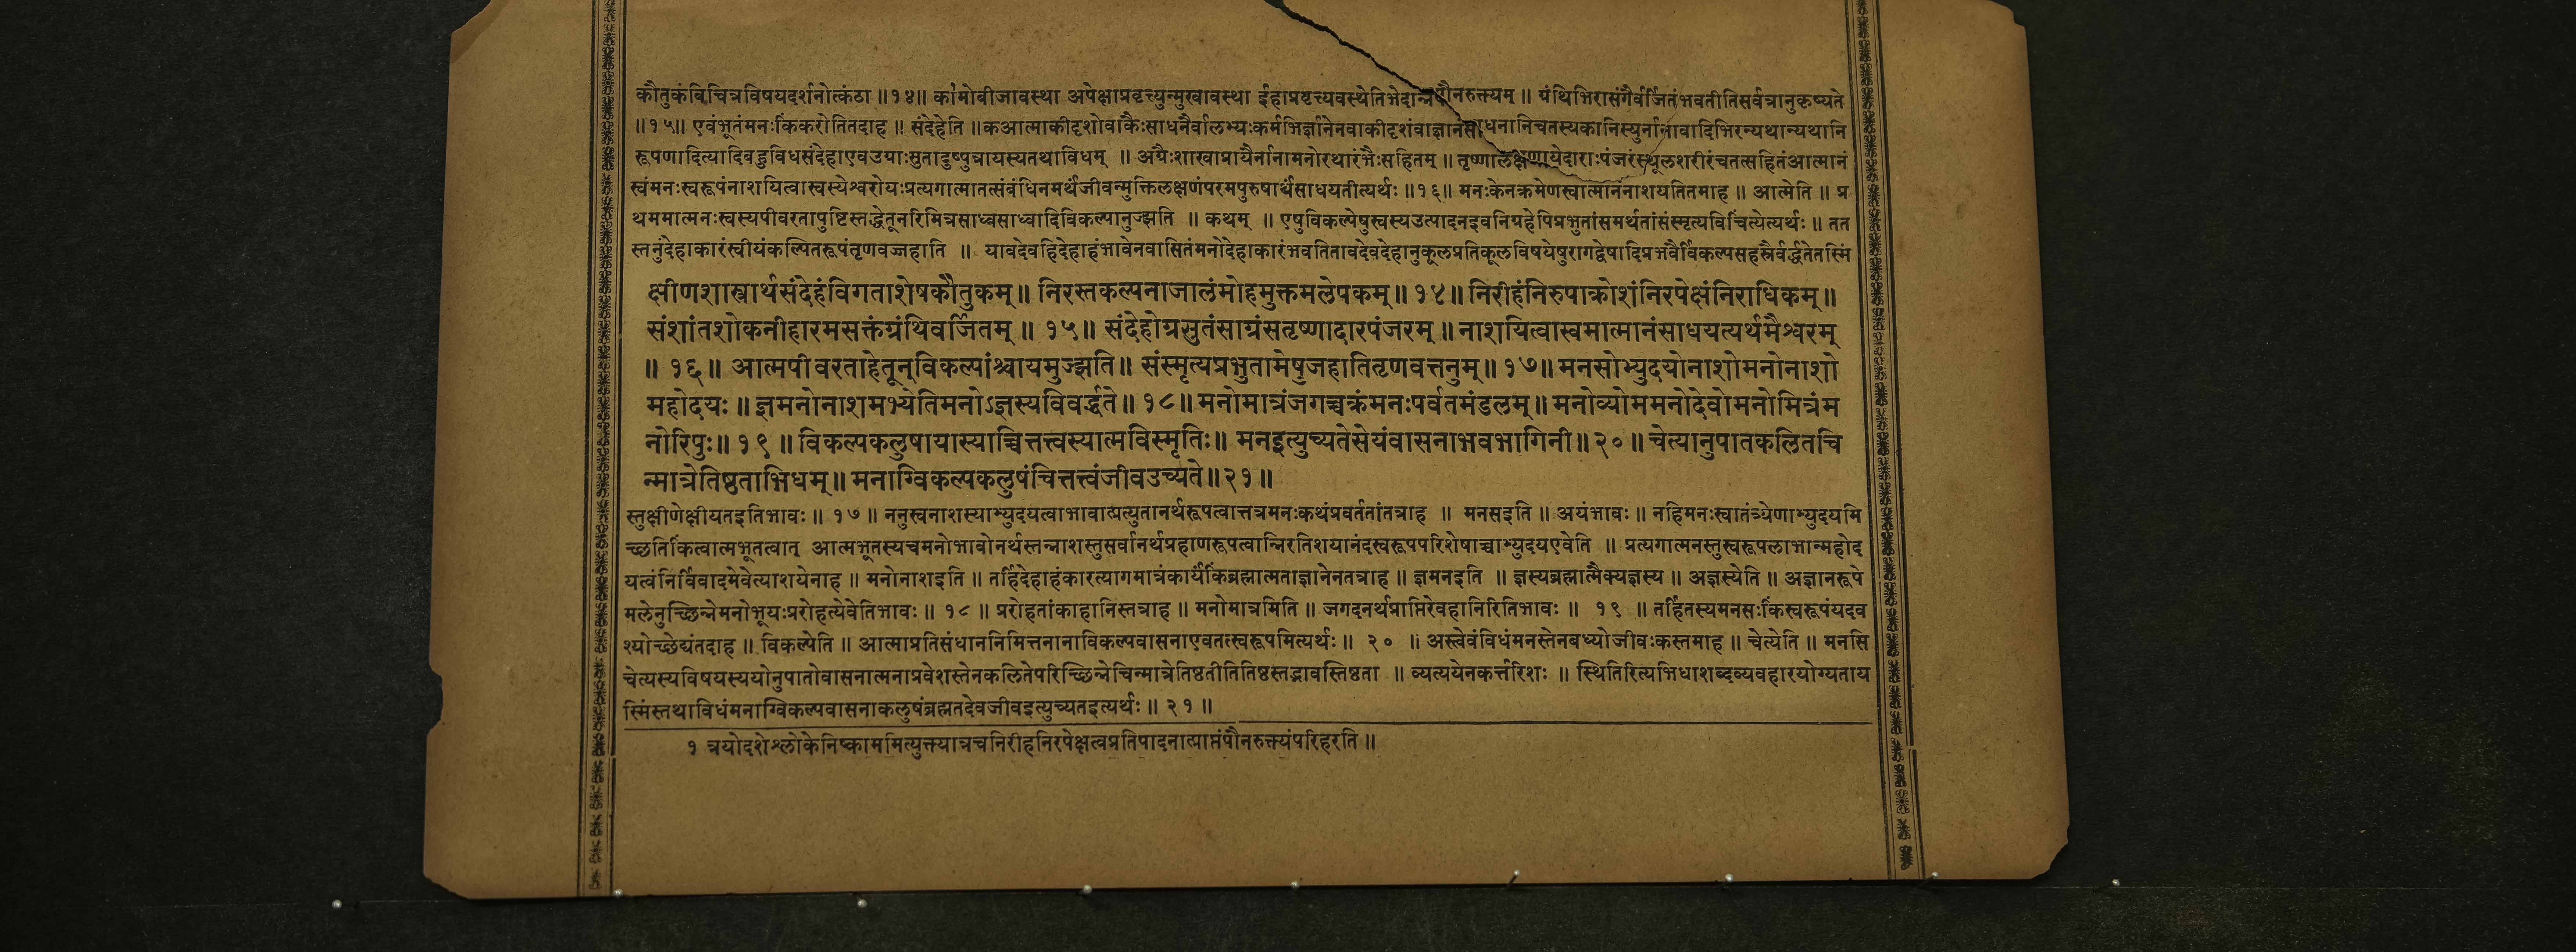 कौतुकंविचित्रविषयदर्शनोत्कंठा ॥१४॥ कामोबीजावस्था अपेक्षाप्रवृत्त्युन्मुखावस्था ईहाप्रवृत्त्यवस्थेतिभेदान्नपौनरुक्त्यम् ॥ ग्रंथिभिरासंगैर्वर्जितंभवतीतिसर्वत्रानुकृष्यते
॥१५॥ एवंभूतंमनःकिंकरोतितदाह ॥ संदेहेति ॥कआत्माकीदृशोवाकैःसाधनैर्वालभ्यःकर्मभिर्ज्ञानेनवाकीदृशंवाज्ञानंसाधनानिचतस्यकानिस्युर्नानावादिभिरन्यथान्यथानि
रूपणादित्यादिबहुविधसंदेहाएवउग्राःसुतादुष्पुत्रायस्यतथाविधम् ॥ अग्रैःशाखाप्रायैर्नानामनोरथारंभैःसहितम् ॥ तृष्णालक्षणायेदाराःपंजरंस्थूलशरीरंचतत्सहितंआत्मानं
स्वंमनःस्वरूपंनाशयित्वास्वस्येश्वरोयःप्रत्यगात्मातत्संबंधिनमर्थंजीवन्मुक्तिलक्षणंपरमपुरुषार्थंसाधयतीत्यर्थः ॥१६॥ मनःकेनक्रमेणस्वात्मानंनाशयतितमाह ॥ आत्मेति ॥ प्र
थममात्मनःस्वस्यपीवरतापुष्टिस्तद्धेतूनरिमित्रसाध्वसाध्वादिविकल्पानुज्झति ॥ कथम् ॥ एषुविकल्पेषुस्वस्यउत्पादनइवनिग्रहेपिप्रभुतांसमर्थतांसंस्मृत्यविचिंत्येत्यर्थः ॥ तत
स्तनुंदेहाकारंस्वीयंकल्पितरूपंतृणवज्जहाति ॥ यावदेवहिदेहाहंभावेनवासितंमनोदेहाकारंभवतितावदेवदेहानुकूलप्रतिकूलविषयेषुरागद्वेषादिप्रभवैर्विकल्पसहस्रैर्वर्द्धतेतस्मिं
क्षीणशास्त्रार्थसंदेहंविगताशेषकौतुकम् ॥ निरस्तकल्पनाजालंमोहमुक्तमलेपकम् ॥ १४ ॥ निरीहंनिरुपाक्रोशंनिरपेक्षंनिराधिकम् ॥
संशांतशोकनीहारमसक्तंग्रंथिवर्जितम् ॥ १५ ॥ संदेहोग्रसुतंसाग्रंसतृष्णादारपंजरम् ॥ नाशयित्वास्वमात्मानंसाधयत्यर्थमैश्वरम्
॥ १६ ॥ आत्मपीवरताहेतून्विकल्पांश्चायमुज्झति ॥ संस्मृत्यप्रभुतामेषुजहातितृणवत्तनुम् ॥ १७ ॥ मनसोभ्युदयोनाशोमनोनाशो
महोदयः ॥ ज्ञमनोनाशमभ्येतिमनोऽज्ञस्यविवर्द्धते ॥ १८ ॥ मनोमात्रंजगच्चक्रंमनःपर्वतमंडलम् ॥ मनोव्योममनोदेवोमनोमित्रंम
नोरिपुः ॥ १९ ॥ विकल्पकलुषायास्याच्चित्तत्त्वस्यात्मविस्मृतिः ॥ मनइत्युच्यतेसेयंवासनाभवभागिनी ॥ २० ॥ चेत्यानुपातकलितचि
न्मात्रेतिष्ठताभिधम् ॥ मनाग्विकल्पकलुषंचित्तत्त्वंजीवउच्यते ॥ २१ ॥
स्तुक्षीणेक्षीयतइतिभावः ॥ १७ ॥ ननुस्वनाशस्याभ्युदयत्वाभावात्प्रत्युतानर्थरूपत्वात्तत्रमनःकथंप्रवर्ततांतत्राह ॥ मनसइति ॥ अयंभावः ॥ नहिमनःस्वातंत्र्येणाभ्युदयमि
च्छतिकिंत्वात्मभूतत्वात् आत्मभूतस्यचमनोभावोनर्थस्तन्नाशस्तुसर्वानर्थप्रहाणरूपत्वान्निरतिशयानंदस्वरूपपरिशेषाच्चाभ्युदयएवेति ॥ प्रत्यगात्मनस्तुस्वरूपलाभान्महोद
यत्वंनिर्विवादमेवेत्याशयेनाह ॥ मनोनाशइति ॥ तर्हिदेहाहंकारत्यागमात्रंकार्यंकिंब्रह्मात्मताज्ञानेनतत्राह ॥ ज्ञमनइति ॥ ज्ञस्यब्रह्मात्मैक्यज्ञस्य ॥ अज्ञस्येति ॥ अज्ञानरूपे
मलेनुच्छिन्नेमनोभूयःप्ररोहत्येवेतिभावः ॥ १८ ॥ प्ररोहतांकाहानिस्तत्राह ॥ मनोमात्रमिति ॥ जगदनर्थप्राप्तिरेवहानिरितिभावः ॥ १९ ॥ तर्हितस्यमनसःकिंस्वरूपंयदव
श्योच्छेद्यंतदाह ॥ विकल्पेति ॥ आत्माप्रतिसंधाननिमित्तनानाविकल्पवासनाएवतत्स्वरूपमित्यर्थः ॥ २० ॥ अस्त्वेवंविधंमनस्तेनबध्योजीवःकस्तमाह ॥ चेत्येति ॥ मनसि
चेत्यस्यविषयस्ययोनुपातोवासनात्मनाप्रवेशस्तेनकलितेपरिच्छिन्नेचिन्मात्रेतिष्ठतीतितिष्ठस्तद्भावस्तिष्ठता ॥ व्यत्ययेनकर्त्तरिशः ॥ स्थितिरित्यभिधाशब्दव्यवहारयोग्यताय
स्मिंस्तथाविधंमनाग्विकल्पवासनाकलुषंब्रह्मतदेवजीवइत्युच्यतइत्यर्थः ॥ २१ ॥
१ त्रयोदशेश्लोकेनिष्काममित्युक्त्यात्रचनिरीहनिरपेक्षत्वप्रतिपादनात्प्राप्तंपौनरुक्त्यंपरिहरति ॥